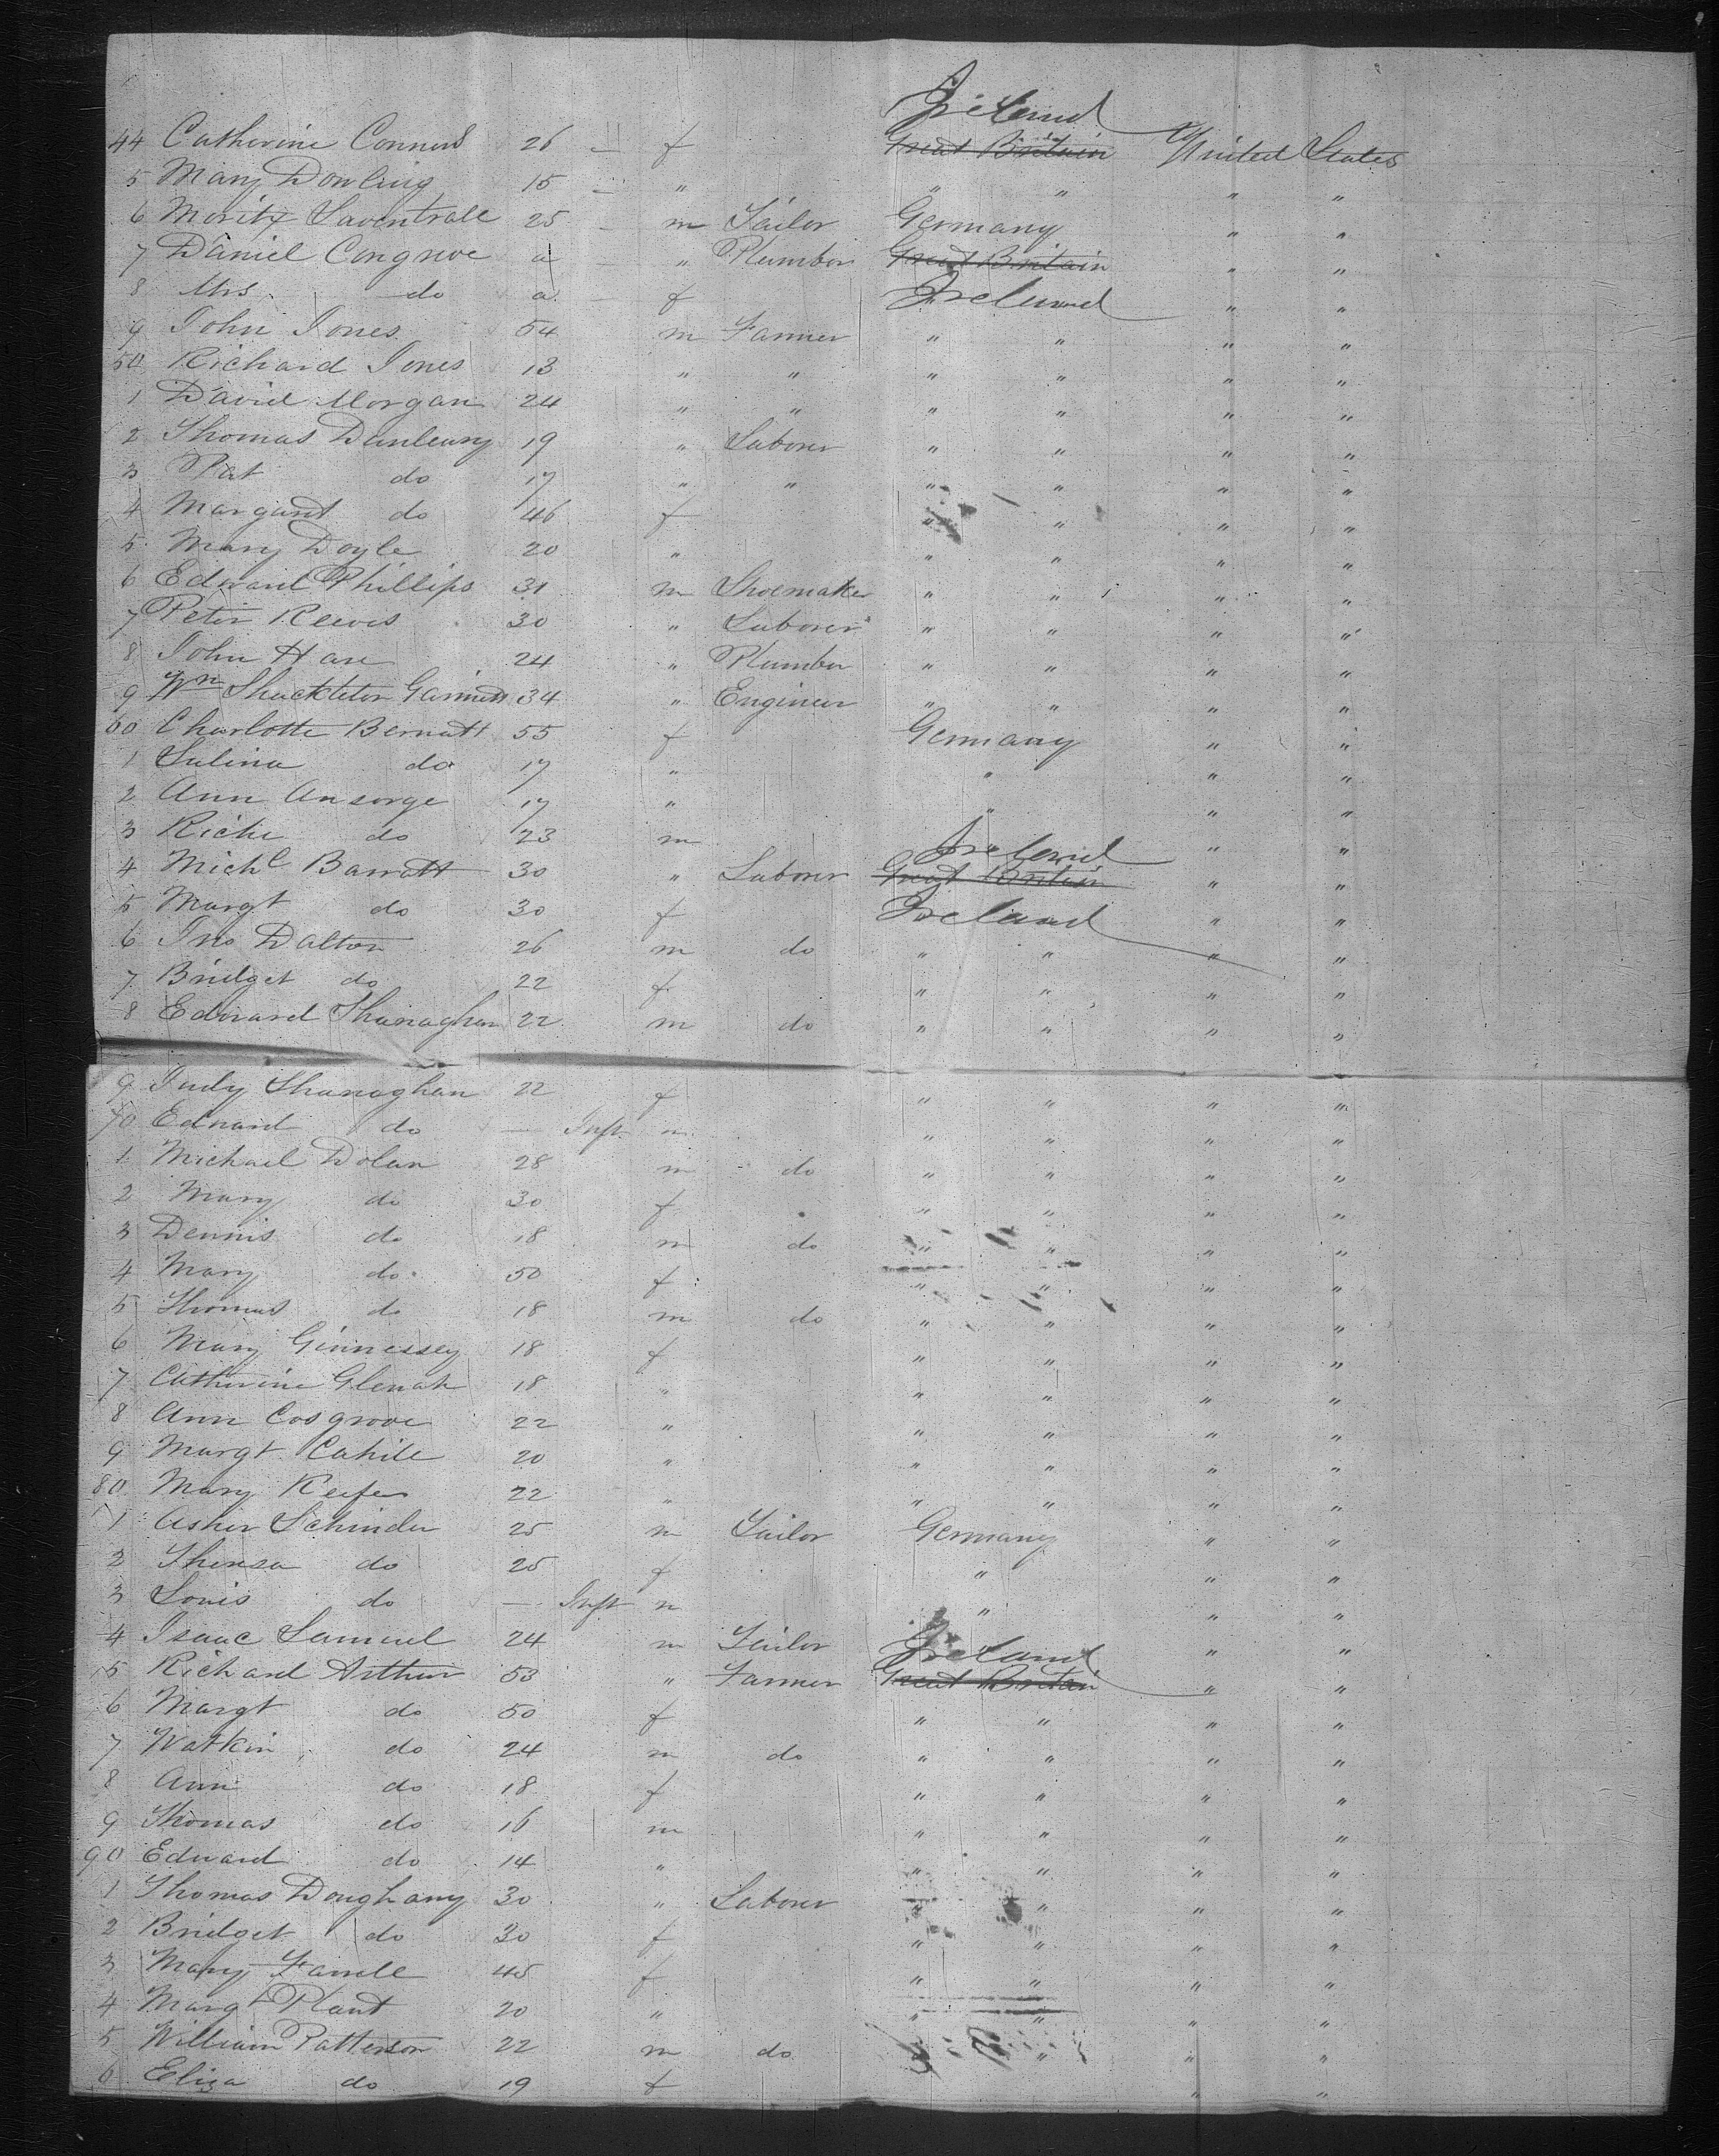 Ireland
44 Catherine Connors 26 " f Great Britain United States
5 Mary Dowling 15 " " " " "
6 Moritz Laventrall 25 m Tailor Germany " "
7 Daniel Congrove a " Plumber Great Britain " "
8 Mrs. do a f Ireland " "
9 John Jones 54 m Farmer " " " "
50 Richard Jones 13 " " " " " "
1 David Morgan 24 " " " " " "
2 Thomas Dunleavy 19 " Laborer " " " "
3 Pat do 17 " " " " " "
4 Margaret do 46 f " " " "
5 Mary Doyle 20 " " " " "
6 Edward Phillips 31 m Shoemaker " " " "
7 Peter Reeves 30 " Laborer " " " "
8 John Hare 24 " Plumber " " " "
9 Wm Shackleton 34 " Engineer " " " "
60 Charlotte Bernatt 55 f Germany " "
1 Sulina do 17 " " " "
2 Ann Ansorge 17 " " " "
3 Riche do 23 m Ireland " "
4 Michl Barratt 30 " Laborer Great Britain " "
5 Margt do 30 f Ireland " "
6 Jno Dalton 26 m do " " " "
7 Bridget do 22 f " " " "
8 Edward Shanaghan 22 m do " " " "
9 Judy Shanaghan 22 f " " " "
70 Edward do — Inft m " " " "
1 Michael Dolan 28 m do " " " "
2 Mary do 30 f " " " "
3 Dennis do 18 m do " " " "
4 Mary do 50 f " " " "
5 Thomas do 18 m do " " " "
6 Mary Ginnessey 18 f " " " "
7 Catherine 18 " " " " "
8 Ann Cosgrove 22 " " " " "
9 Margt Cahill 20 " " " " "
80 Mary Keefe 22 " " " " "
1 Asher Schinder 25 m Tailor Germany " "
2 Theresa do 25 f " " "
3 Louis do — Inft m " " "
4 Isaac Samuel 24 m Tailor " Ireland " "
5 Richard Arthur 53 " Farmer Great Britain " "
6 Margt do 50 f " " " "
7 Watkin do 24 m do " " " "
8 Ann do 18 f " " " "
9 Thomas do 16 m " " " "
90 Edward do 14 " " " " "
1 Thomas Doughany 30 " Laborer " " " "
2 Bridget do 30 f " " " "
3 Mary Farrell 45 f " " " "
4 Margt Plant 20 " " " " "
5 William Patterson 22 m do " " " "
6 Eliza do 19 f " "